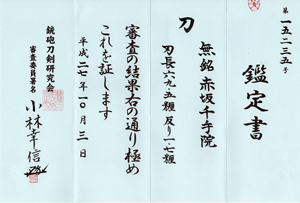 第一五一三五号
鑑定書
刀 無銘 赤坂千手院
刃長六九、五糎 反り一・七糎
審査の結果右の通り極め
これを証します
平成二七年一〇月三日
銃砲刀剣研究会
審査委員署名 小林幸信